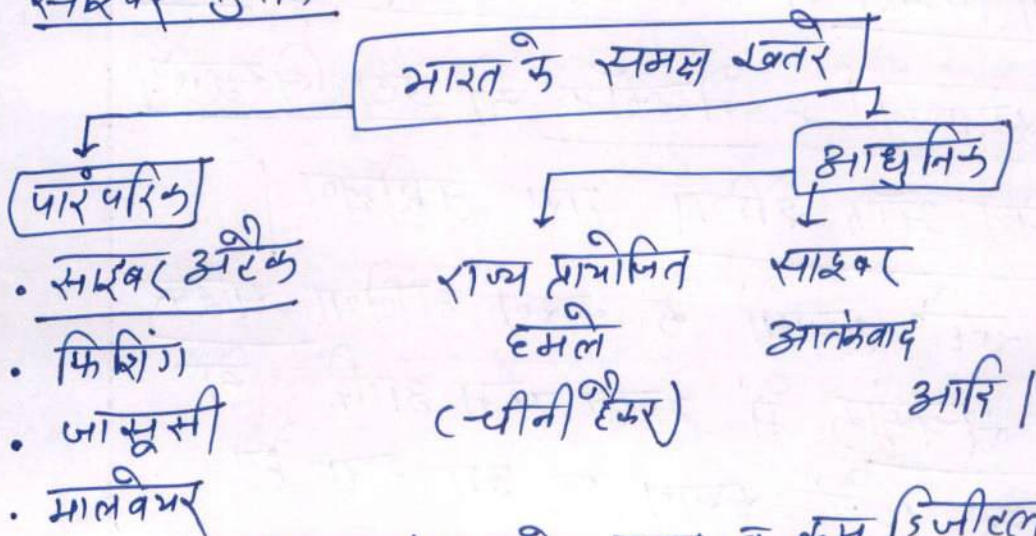 भारत के समक्ष खतरे
पारंपरिक
आधुनिक
• साइबर अटैक
• फिशिंग
• जासूसी
• मालवेयर
राज्य प्रायोजित
हमले
(चीनी हैकर)
साइबर
आतंकवाद
आदि।
कम डिजीटल